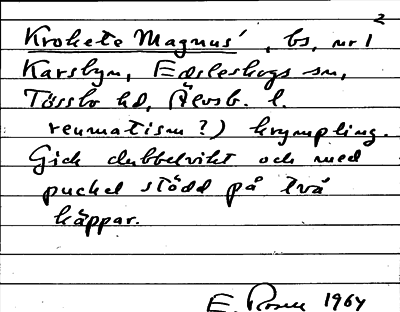 2
Krokete Magnus', bs, nr 1
Karsbyn, Edsleskogs sn,
Tössbo hd, Älvsb. l.
reumatism?) krympling.
Gick dubbelvikt och med
puckel stödd på två
käppar.
E. Rosen 1964